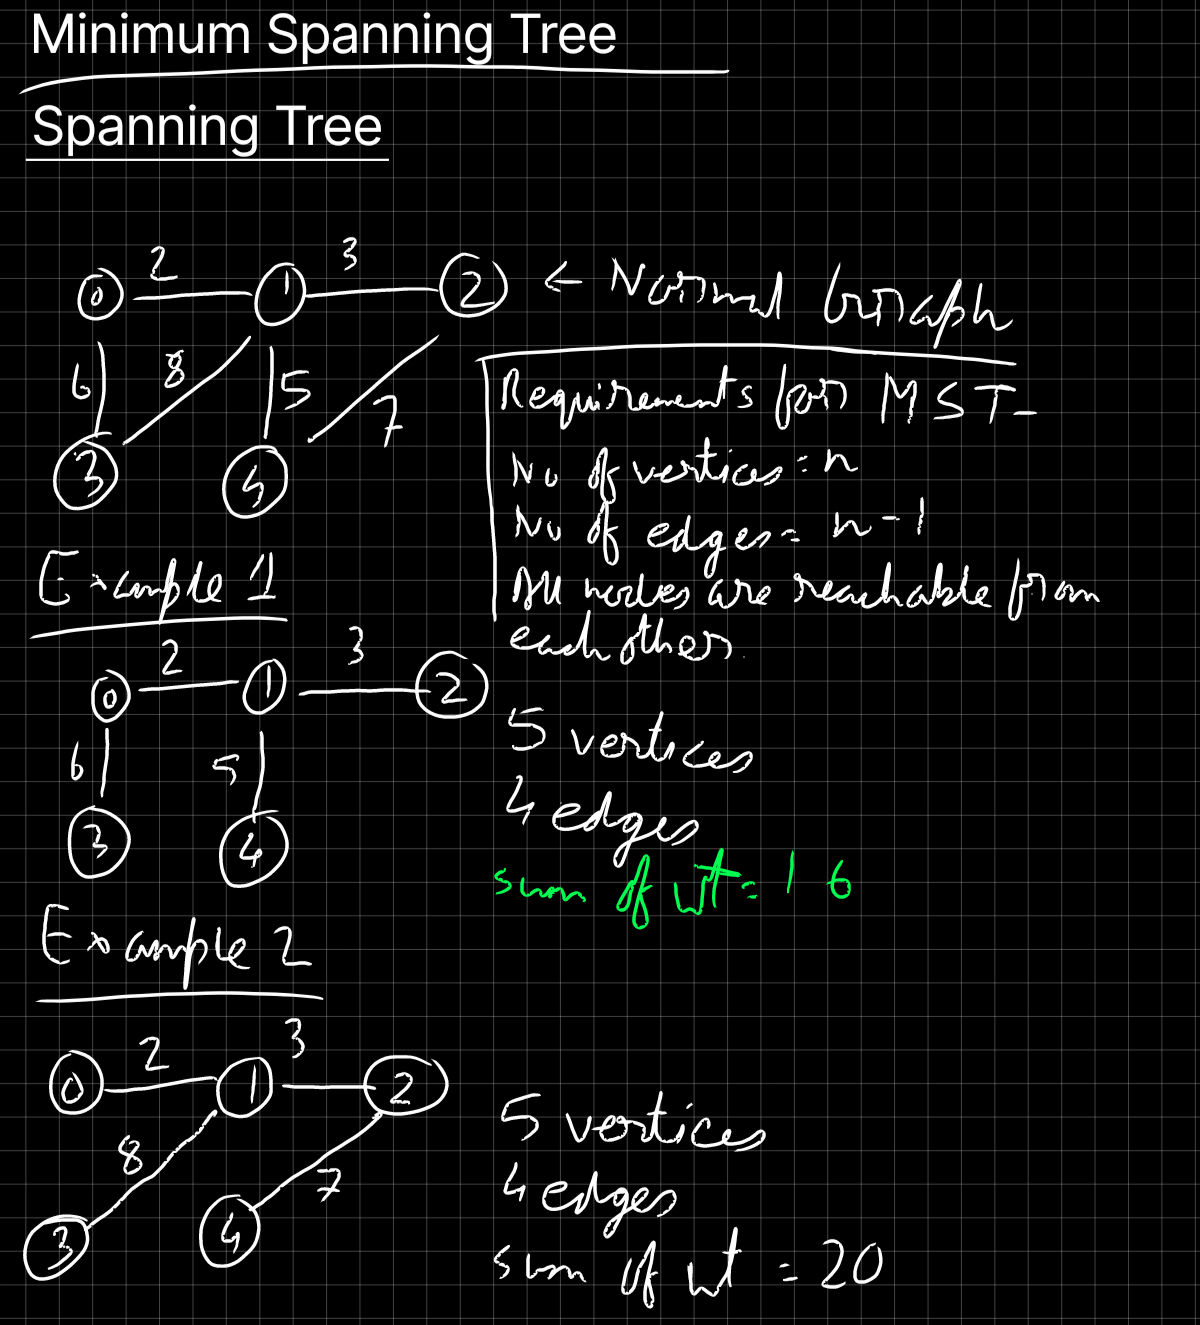 Minimum Spanning Tree
Spanning Tree
2 3
0 1 2 ← Normal Graph
6 8 5 7
3 4
Requirements for MST-
No of vertices = n
No of edges = n-1
All nodes are reachable from
each other.
Example 1
2 3
0 1 2
6 5
3 4
5 vertices
4 edges
sum of wt = 16
Example 2
2 3
0 1 2
8 7
3 4
5 vertices
4 edges
sum of wt = 20